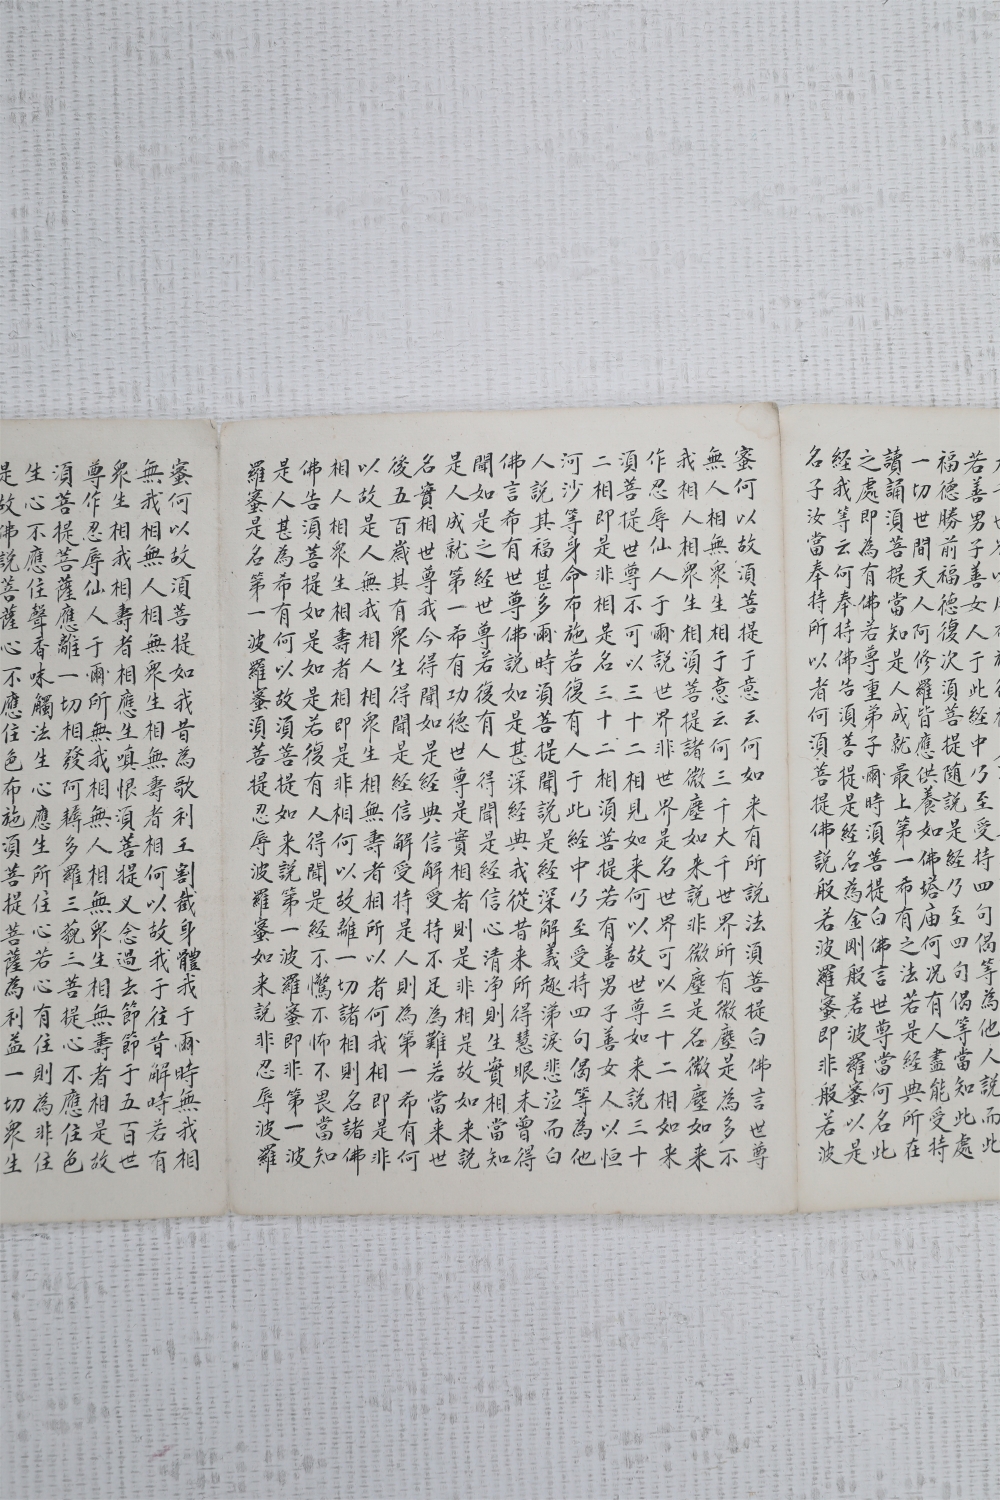 若善男子善女人于此經中乃至受持四句偈等為他人說而此
福德勝前福德復次須菩提隨說是經乃至四句偈等當知此處
一切世間天人阿修羅皆應供養如佛塔庙何况有人盡能受持
讀誦須菩提當知是人成就最上第一希有之法若是經典所在
之處即為有佛若尊重弟子爾時須菩提白佛言世尊當何名此
経我等云何奉持佛告須菩提是経名為金剛般若波羅蜜以是
名子汝當奉持所以者何須菩提佛說般若波羅蜜即非般若波
蜜何以故須菩提于意云何如来有所說法須菩提白佛言世尊
無人相無衆生相于意云何三千大千世界所有微塵是為多不
我相人相衆生相須菩提諸微塵如来說非微塵是名微塵如来
作忍辱仙人于爾說世界非世界是名世界可以三十二相如来
須菩提世尊不可以三十二相見如来何以故世尊如来說三十
二相即是非相是名三十二相須菩提若有善男子善女人以恒
河沙等身命布施若復有人于此經中乃至受持四句偈等為他
人說其福甚多爾時須菩提聞說是經深解義趣涕淚悲泣而白
佛言希有世尊佛說如是甚深經典我從昔来所得慧眼未曾得
聞如是之經世尊若復有人得聞是經信心清净則生實相當知
是人成就第一希有功德世尊是實相者則是非相是故如来說
名實相世尊我今得聞如是經典信解受持不足為難若當来世
後五百歲其有衆生得聞是經信解受持是人則為第一希有何
以故是人無我相人相衆生相無壽者相所以者何我相即是非
相人相衆生相壽者相即是非相何以故離一切諸相則名諸佛
佛告須菩提如是如是若復有人得聞是經不驚不怖不畏當知
是人甚為希有何以故須菩提如来說第一波羅蜜即非第一波
羅蜜是名第一波羅蜜須菩提忍辱波羅蜜如来說非忍辱波羅
蜜何以故須菩提如我昔為歌利王割截身體我于爾時無我相
無我相無人相無衆生相無壽者相何以故我于往昔解時若有
衆生相我相壽者相應生嗔恨須菩提又念過去節節于五百世
尊作忍辱仙人于爾所無我相無人相無衆生相無壽者相是故
須菩提菩薩應離一切相發阿耨多羅三藐三菩提心不應住色
生心不應住聲香味觸法生心應生所住心若心有住則為非住
是故佛說菩薩心不應住色布施須菩提菩薩為利益一切衆生